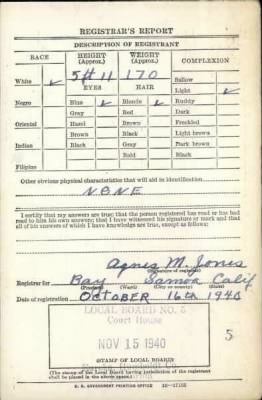 REGISTRAR'S REPORT
DESCRIPTION OF REGISTRANT
RACE HEIGHT (Approx.) WEIGHT (Approx.) COMPLEXION
White ✓ 5ft 11 170 Sallow
EYES HAIR Light ✓
Negro Blue ✓ Blonde ✓ Ruddy
Gray Red Dark
Oriental Hazel Brown Freckled
Brown Black Light brown
Indian Black Gray Dark brown
Bald Black
Filipino
Other obvious physical characteristics that will aid in identification
NONE
I certify that my answers are true; that the person registered has read or has had
read to him his own answers; that I have witnessed his signature or mark and that
all of his answers of which I have knowledge are true, except as follows:
Agnes M. Jones
(Signature of registrar)
Registrar for Samoa Calif
(Precinct) (Ward) (City or county) (State)
Date of registration October 16th 1940
LOCAL BOARD NO. 5
Court House
5
NOV 15 1940
STAMP OF LOCAL BOARD
(The stamp of the Local Board having jurisdiction of the registrant
shall be placed in the above space)
U. S. GOVERNMENT PRINTING OFFICE